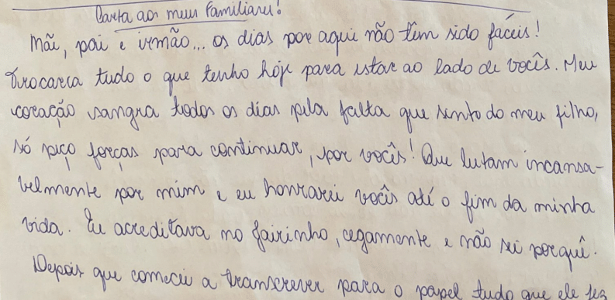 Carta aos meus Familiares!
Mãe, pai e irmão... os dias por aqui não têm sido fáceis!
Trocaria tudo o que tenho hoje para estar ao lado de vocês. Meu
coração sangra todos os dias pela falta que sinto do meu filho,
só peço forças para continuar, por vocês! Que lutam incansa-
velmente por mim e eu honrarei vocês até o fim da minha
vida. Eu acreditava no Jairinho, cegamente e não sei porquê.
Depois que comecei a transcrever para o papel tudo que ele fez